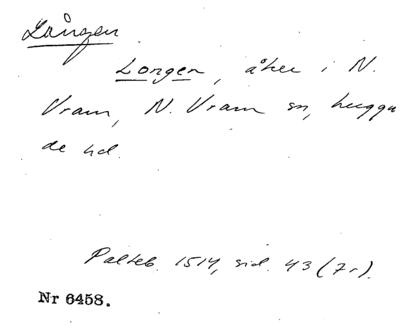 Lången.
Longen, åker i N.
Vram, N. Vram sn, Luggu
de hd.
Palteb. 1514, sid. 43 (7r).
Nr 6458.